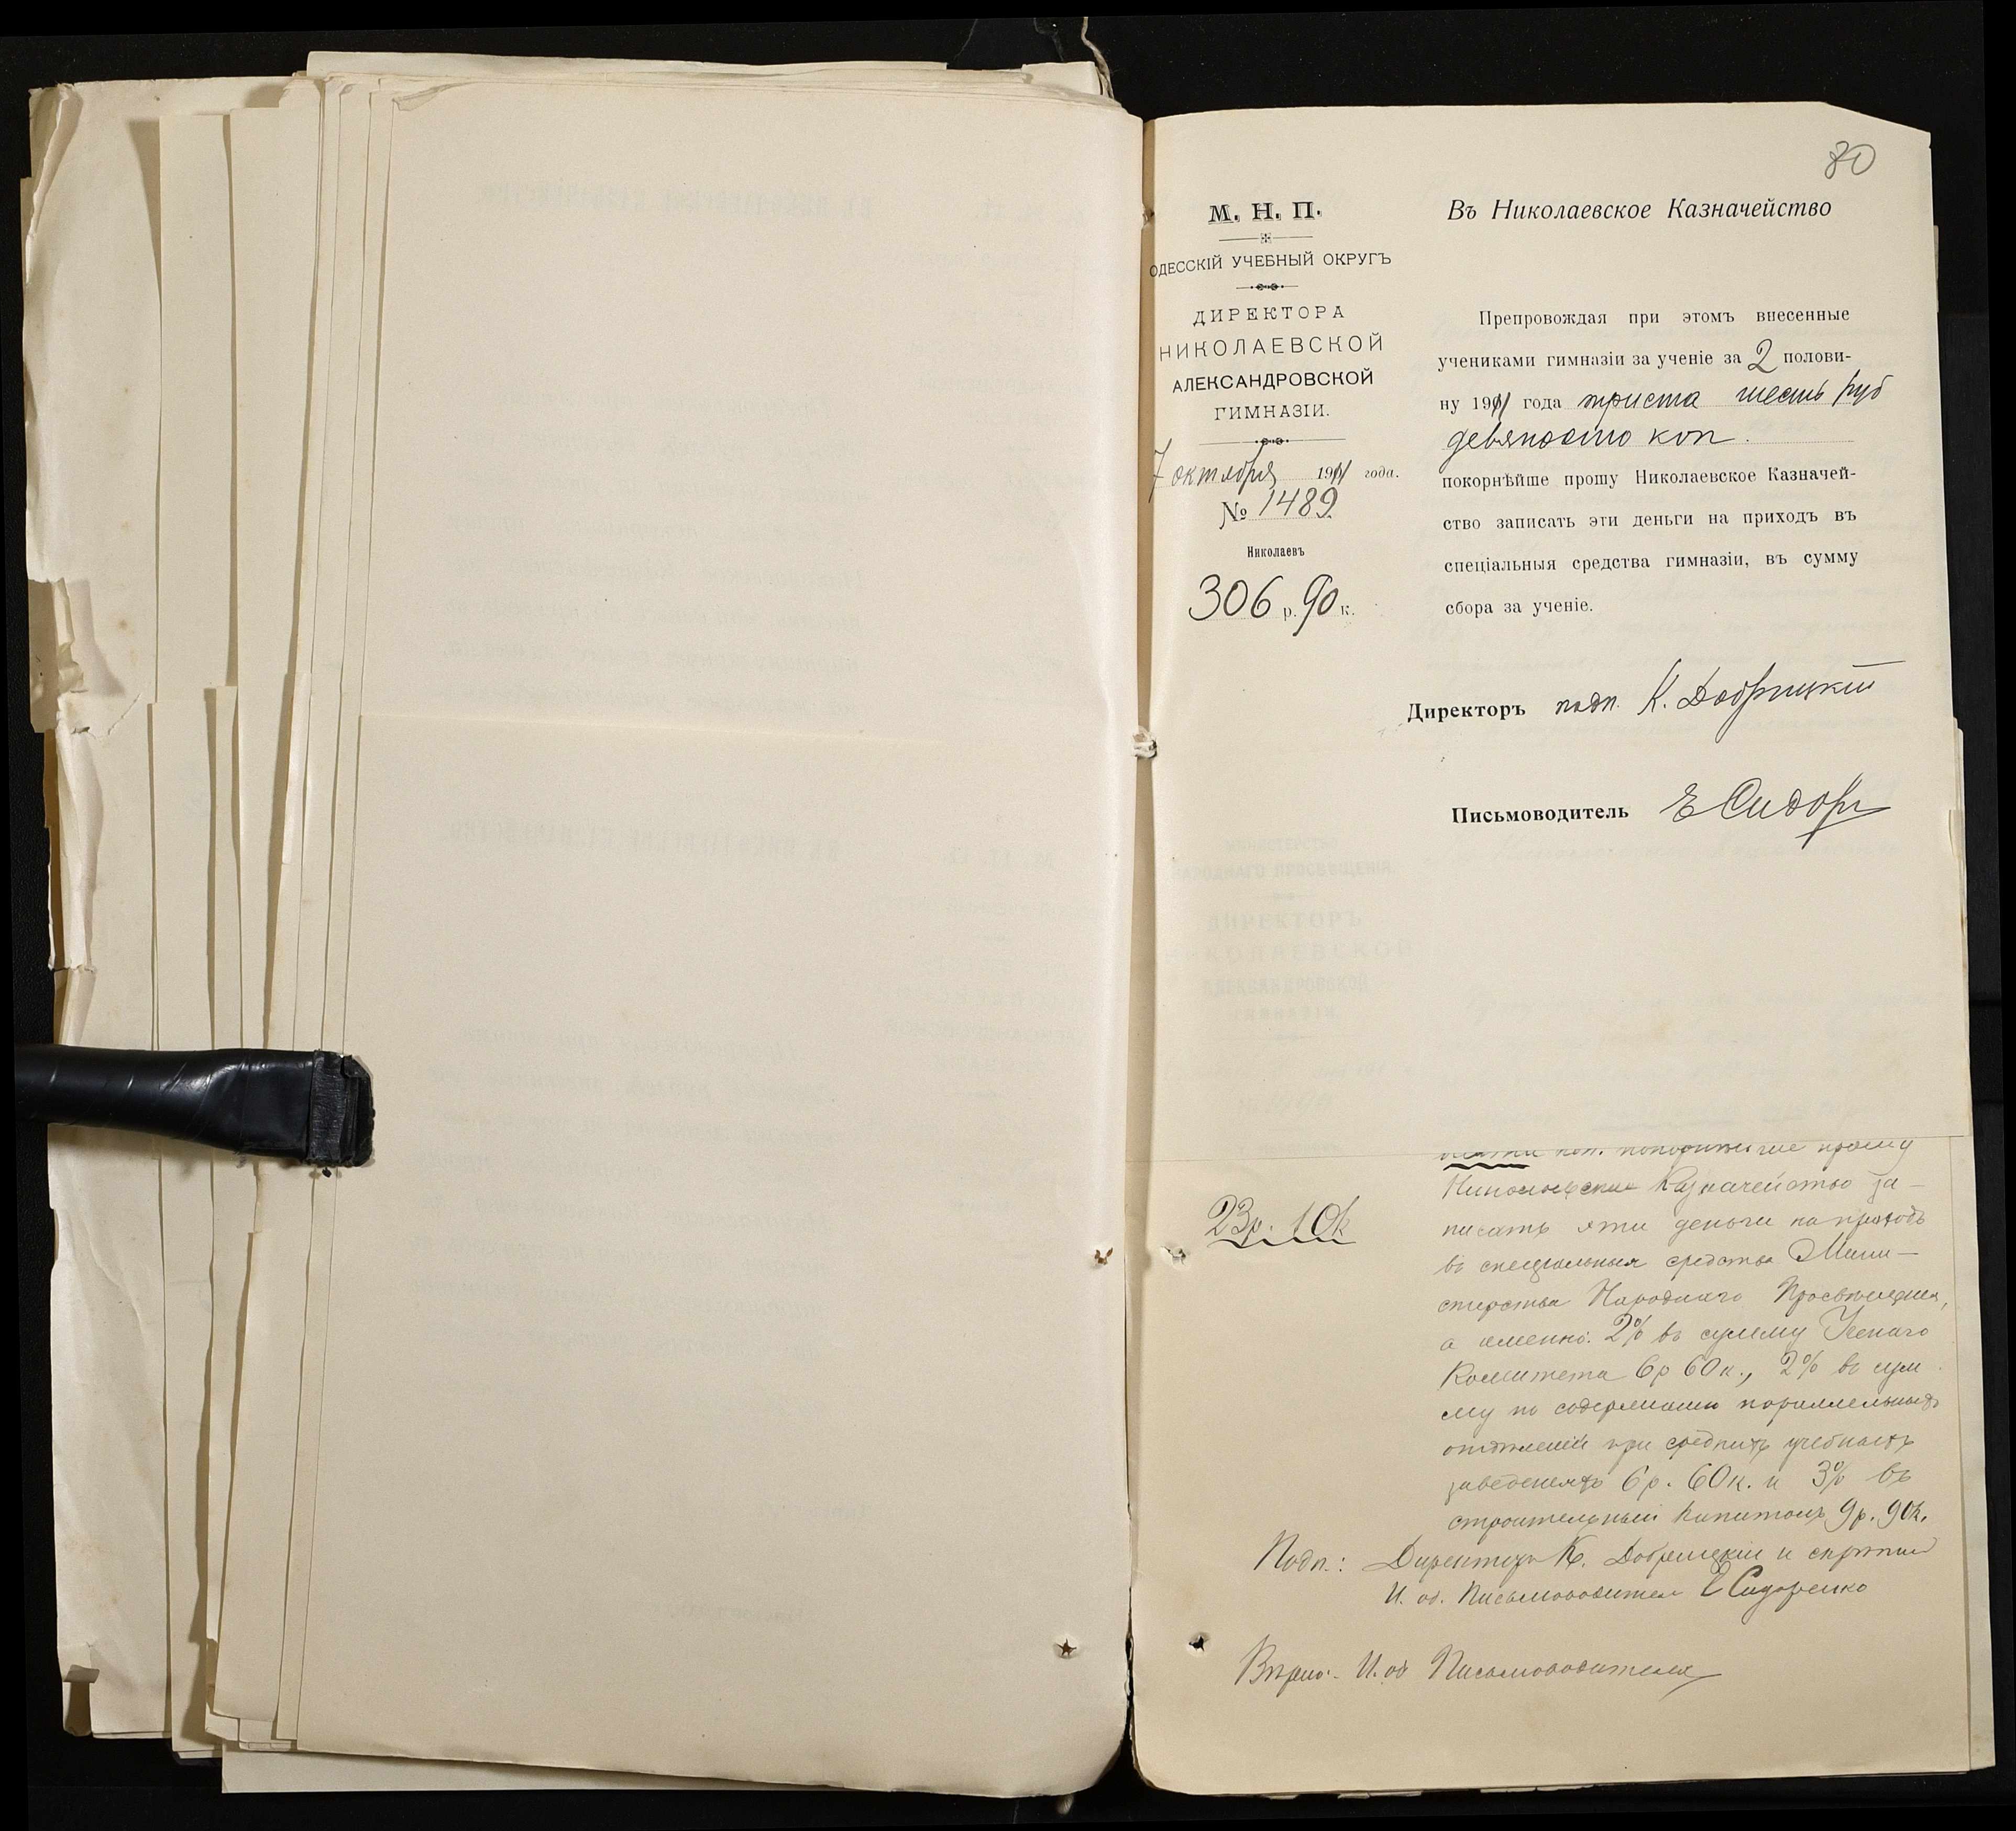 80
М. Н. П.
ОДЕССКІЙ УЧЕБНЫЙ ОКРУГЪ
ДИРЕКТОРА
НИКОЛАЕВСКОЙ
АЛЕКСАНДРОВСКОЙ
ГИМНАЗІИ.
7 октября 1911 года.
№ 1489
Николаевъ
306 р. 90 к.
Въ Николаевское Казначейство
Препровождая при этомъ внесенные
учениками гимназіи за ученіе за 2 полови-
ну 1911 года триста шесть руб
девяносто коп.
покорнѣйше прошу Николаевское Казначей-
ство записать эти деньги на приходъ въ
спеціальныя средства гимназіи, въ сумму
сбора за ученіе.
Директоръ подп. К. Добрицкій
Письмоводитель Е Сидор
коп. покорнѣйше прошу
23р. 10к
Николаевское Казначейство за-
писать эти деньги на приходъ
въ спеціальныя средства Мини-
стерства Народнаго Просвѣщенія,
а именно: 2% въ сумму Ученаго
Комитета 6р 60к., 2% въ сум
му по содержанію параллельныхъ
отдѣленій при среднихъ учебныхъ
заведеніяхъ 6р. 60к. и 3% въ
строительный капиталъ 9р. 90к.
Подп.: Директоръ К. Добрицкій и скрѣпилъ
И. об. Письмоводителя Е Сидоренко
Вѣрно:- И. об Письмоводителя